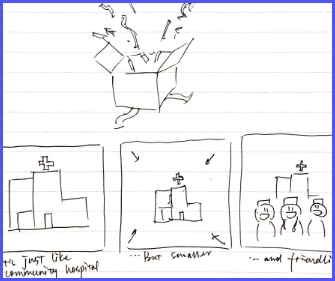 t's just like
community hospital
... But smaller
... and friendli